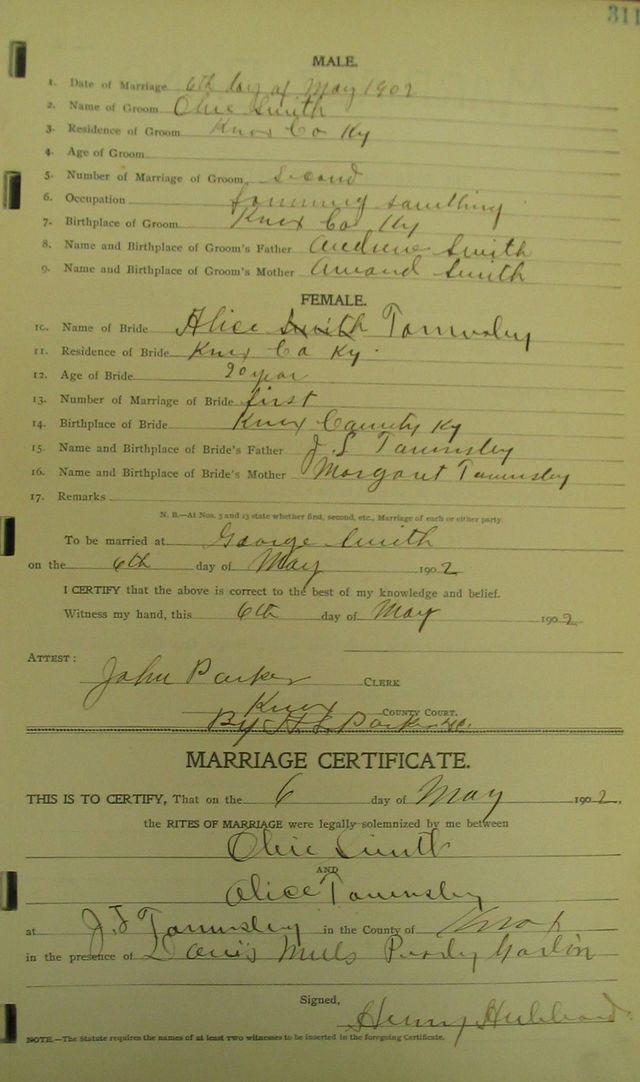 311
MALE.
1. Date of Marriage 6th day of May 1902
2. Name of Groom Obie Smith
3. Residence of Groom Knox Co Ky
4. Age of Groom
5. Number of Marriage of Groom Second
6. Occupation
7. Birthplace of Groom Knox Co Ky
8. Name and Birthplace of Groom's Father Smith
9. Name and Birthplace of Groom's Mother Amand Smith
FEMALE.
10. Name of Bride Alice Smith Tomnsley
11. Residence of Bride Knox Co Ky.
12. Age of Bride 20 year
13. Number of Marriage of Bride first
14. Birthplace of Bride Knox County Ky
15. Name and Birthplace of Bride's Father J. S Tawmsley
16. Name and Birthplace of Bride's Mother Morgant Tawmsley
17. Remarks
N. B.—At Nos. 5 and 13 state whether first, second, etc., Marriage of each or either party.
To be married at George Smith
on the 6th day of May 1902
I CERTIFY that the above is correct to the best of my knowledge and belief.
Witness my hand, this 6th day of May 1902
ATTEST:
John Parker CLERK
Knox COUNTY COURT.
By H. L Parker DC.
MARRIAGE CERTIFICATE.
THIS IS TO CERTIFY, That on the 6 day of May 1902.
the RITES OF MARRIAGE were legally solemnized by me between
Obie Smith
AND
Alice Townsley
at J. S Tawmsley in the County of Knox
in the presence of Davis Mills
Signed,
Henry Hubbard
NOTE.—The Statute requires the names of at least TWO witnesses to be inserted in the foregoing Certificate.